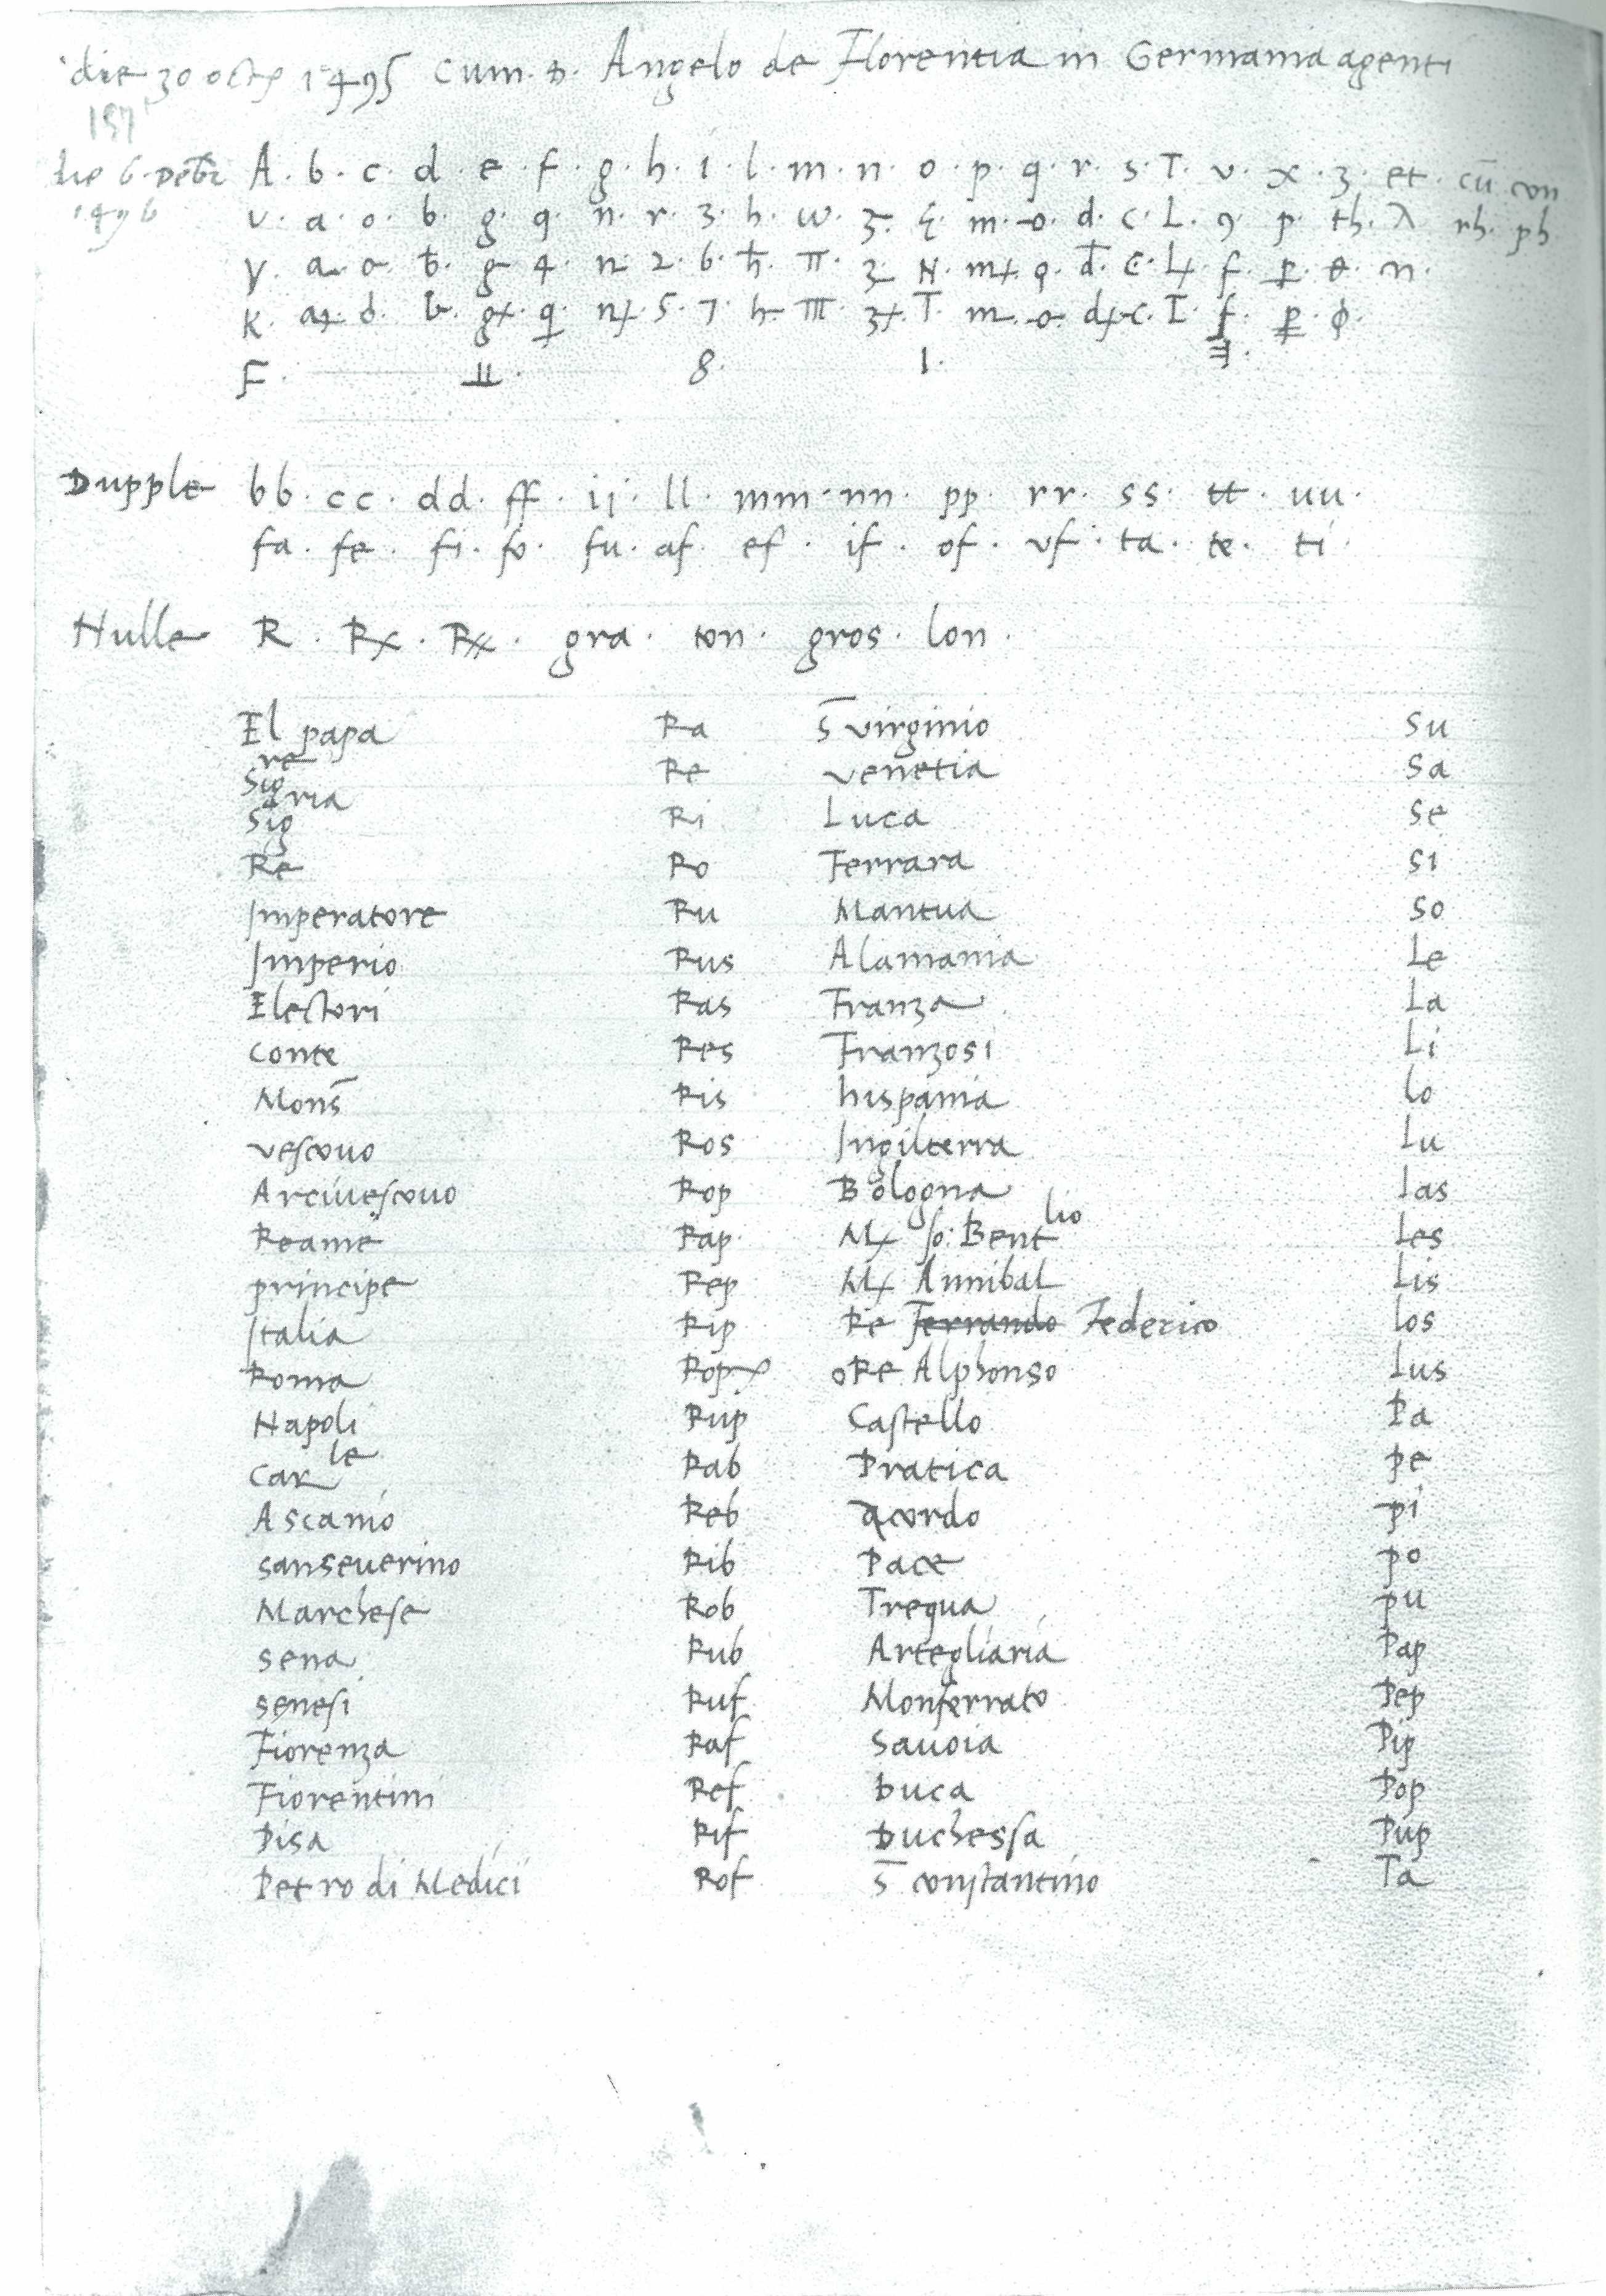 die 30 octs 1495 cum. D. Angelo de Florentia in Germania agenti
197
die 6.
1496
A . b . c . d . e . f . g . h . i . l . m . n . o . p . q . r . s . T . v . x . z . et . cū con
v . a . o . b . g . q . n . r . 3 . h . w . z . m . o . d . c . L . 9 . p . th . λ rh . ph
y . a . o . b . g . 4 . n . 2 . 6 . h . π . z . N . m . q . d . c . f . p . θ . n .
K . d . b . q . 5 . 7 . h . m . o . c . I . f . p . ϕ .
F . II . 8 . 1 .
Dupple bb . cc . dd . ff . ij . ll . mm . nn . pp . rr . ss . tt . uu .
fa . fe . fi . fo . fu . af . ef . if . of . vf . ta . te . ti .
Nulle R . Rx . Rxx . gra . ton . gros . lon .
El papa Ra s̄ virginio Su
Sigre Re venetia Sa
Sigria Ri Luca Se
Re Ro Ferrara Si
Imperatore Ru Mantua So
Imperio Rus Alamania Le
Electori Ras Franza La
Conte Res Franzosi Li
Mons̄ Ris hispania lo
vescovo Ros Ingilterra Lu
Arciuescouo Rop Bologna las
Reame Rap Mx Jo: Bentlio les
principe Rep Mx Annibal Lis
Italia Rip Re Ferrando Federico los
Roma Ropx oRe Alphonso lus
Napoli Rup Castello Pa
Carle Rab Pratica pe
Ascanio Reb acordo pi
sanseuerino Rib Pace po
Marchese Rob Tregua pu
sena Rub Artegliaria Pap
senesi Ruf Monferrato Pep
Fiorenza Raf Sauoia Pip
Fiorentini Ref Duca Pop
Pisa Rif Duchessa Pup
Petro di Medici Rof s̄ constantino Ta